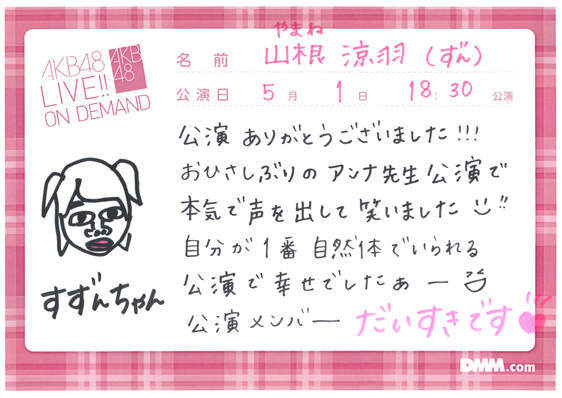 AKB48
LIVE!!
ON DEMAND
AKB
48
やまね
名前 山根 涼羽 (ずん)
公演日 5月 1日 18:30 公演
公演 ありがとうございました!!!
おひさしぶりの アンナ先生公演で
本気で声を出して笑いました!!
自分が1番 自然体でいられる
公演で幸せでしたぁー
公演メンバー だいすきです
すずんちゃん
DMM.com